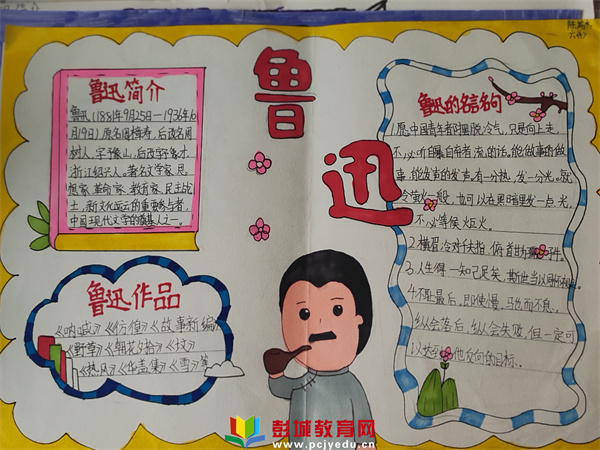 鲁迅
鲁迅简介
鲁迅(1881年9月25日—1936年10
月19日)原名周樟寿,后改名周
树人,字豫山,后改字豫才,
浙江绍兴人。著名文学家、思
想家、革命家、教育家、民主战
士,新文化运动的重要参与者,
中国现代文学的奠基人之一。
鲁迅作品
《呐喊》《彷徨》《故事新编》
《野草》《朝花夕拾》《坟》
《热风》《华盖集》《雪》等
鲁迅的名言名句
1.愿中国青年都摆脱冷气,只是向上走,
不必听自暴自弃者流的话。能做事的做
事,能发声的发声。有一分热,发一分光。就
令萤火一般,也可以在黑暗里发一点光,
不必等候炬火。
2.横眉冷对千夫指,俯首甘为孺子牛。
3.人生得一知己足矣,斯世当以同怀视之。
4.不耻最后,即使慢,驰而不息,
纵会落后,纵会失败,但一定可
以达到他向的目标。
彭城教育网
www.pcjyedu.cn